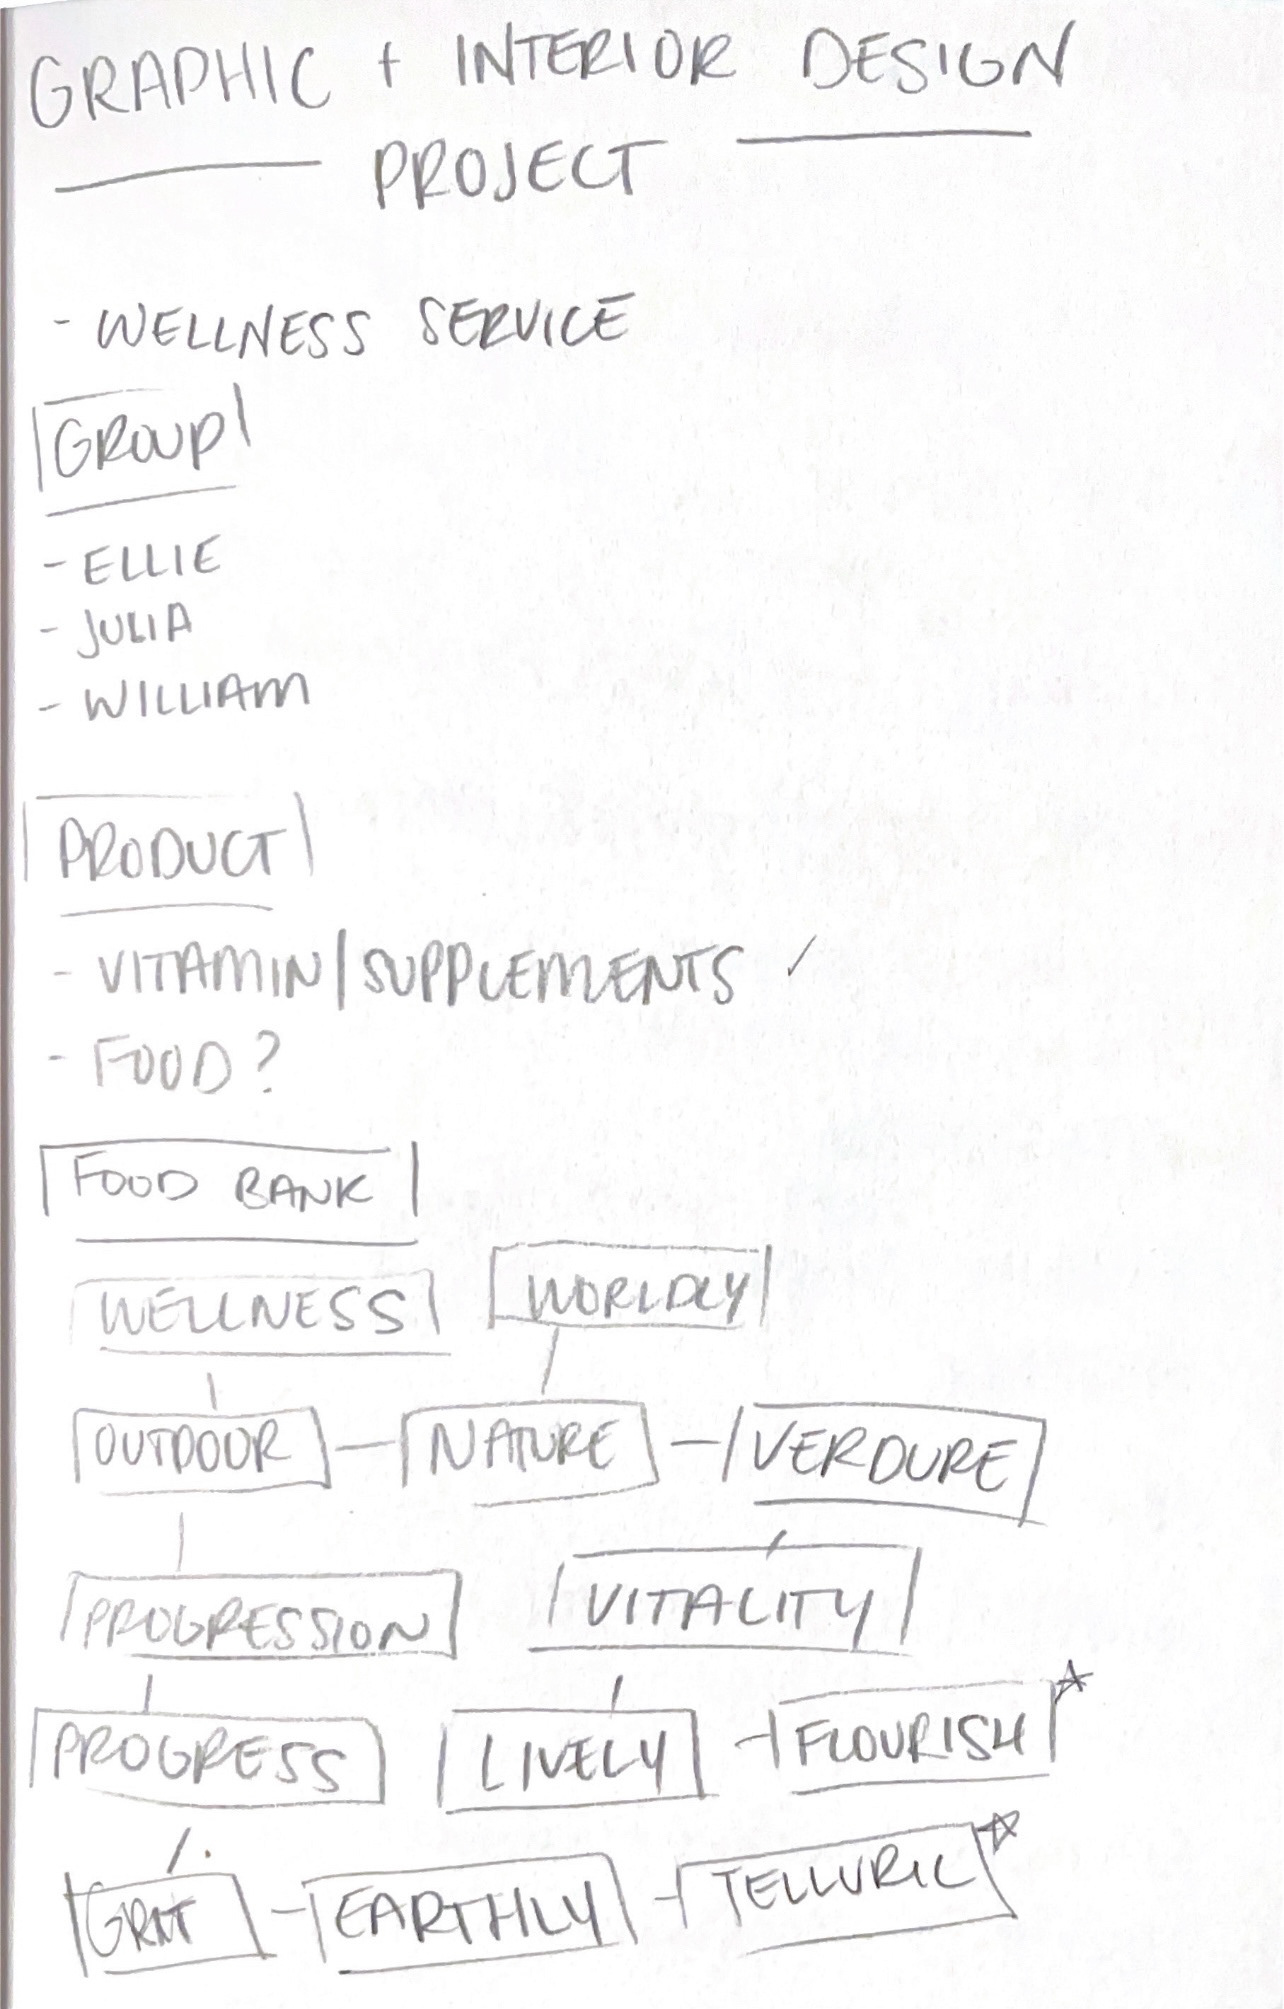 GRAPHIC + INTERIOR DESIGN
PROJECT
- WELLNESS SERVICE
GROUP
- ELLIE
- JULIA
- WILLIAM
PRODUCT
- VITAMIN/SUPPLEMENTS ✓
- FOOD?
FOOD BANK
WELLNESS WORLDLY
OUTDOOR - NATURE - VERDURE
PROGRESSION VITALITY
PROGRESS LIVELY - FLOURISH ☆
GRIT - EARTHLY - TELLURIC ☆